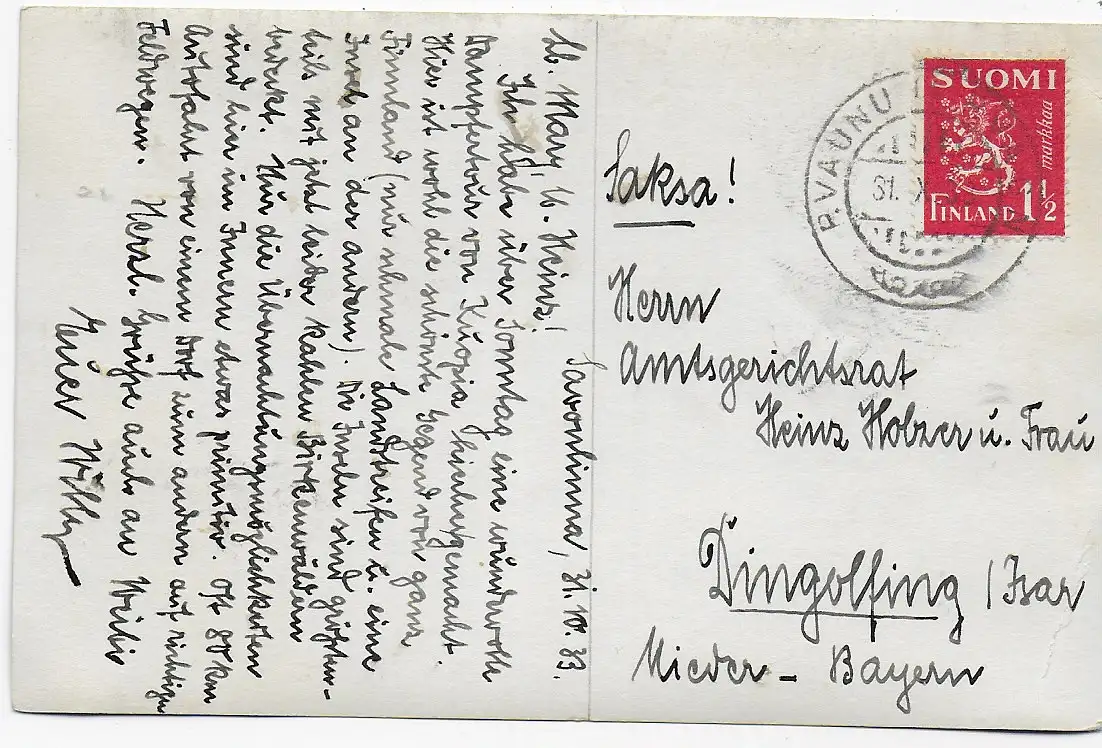 Savonlinna, 31.10.33.
Lb. Mary, lb. Heinz!
Ich habe über Sonntag eine wundervolle
Dampfertour von Kuopia hierher gemacht.
Hier ist wohl die schönste Gegend von ganz
Finnland (nur schmale Landstreifen u. eine
Insel an der andern). Die Inseln sind größten-
teils mit jetzt leider kahlen Birkenwäldern
bedeckt. Nur die Übernachtungmöglichkeiten
sind hier im Innern etwas primitiv. Oft 80 km
Autofahrt von einem Dorf zum andern auf richtigen
Feldwegen. Herzl. Grüße auch an
Euer Willy
SUOMI
markkaa
FINLAND 1 1/2
P.VAUNU
31. X
Saksa!
Herrn
Amtsgerichtsrat
Heinz Holzer u. Frau
Dingolfing / Isar
Nieder - Bayern